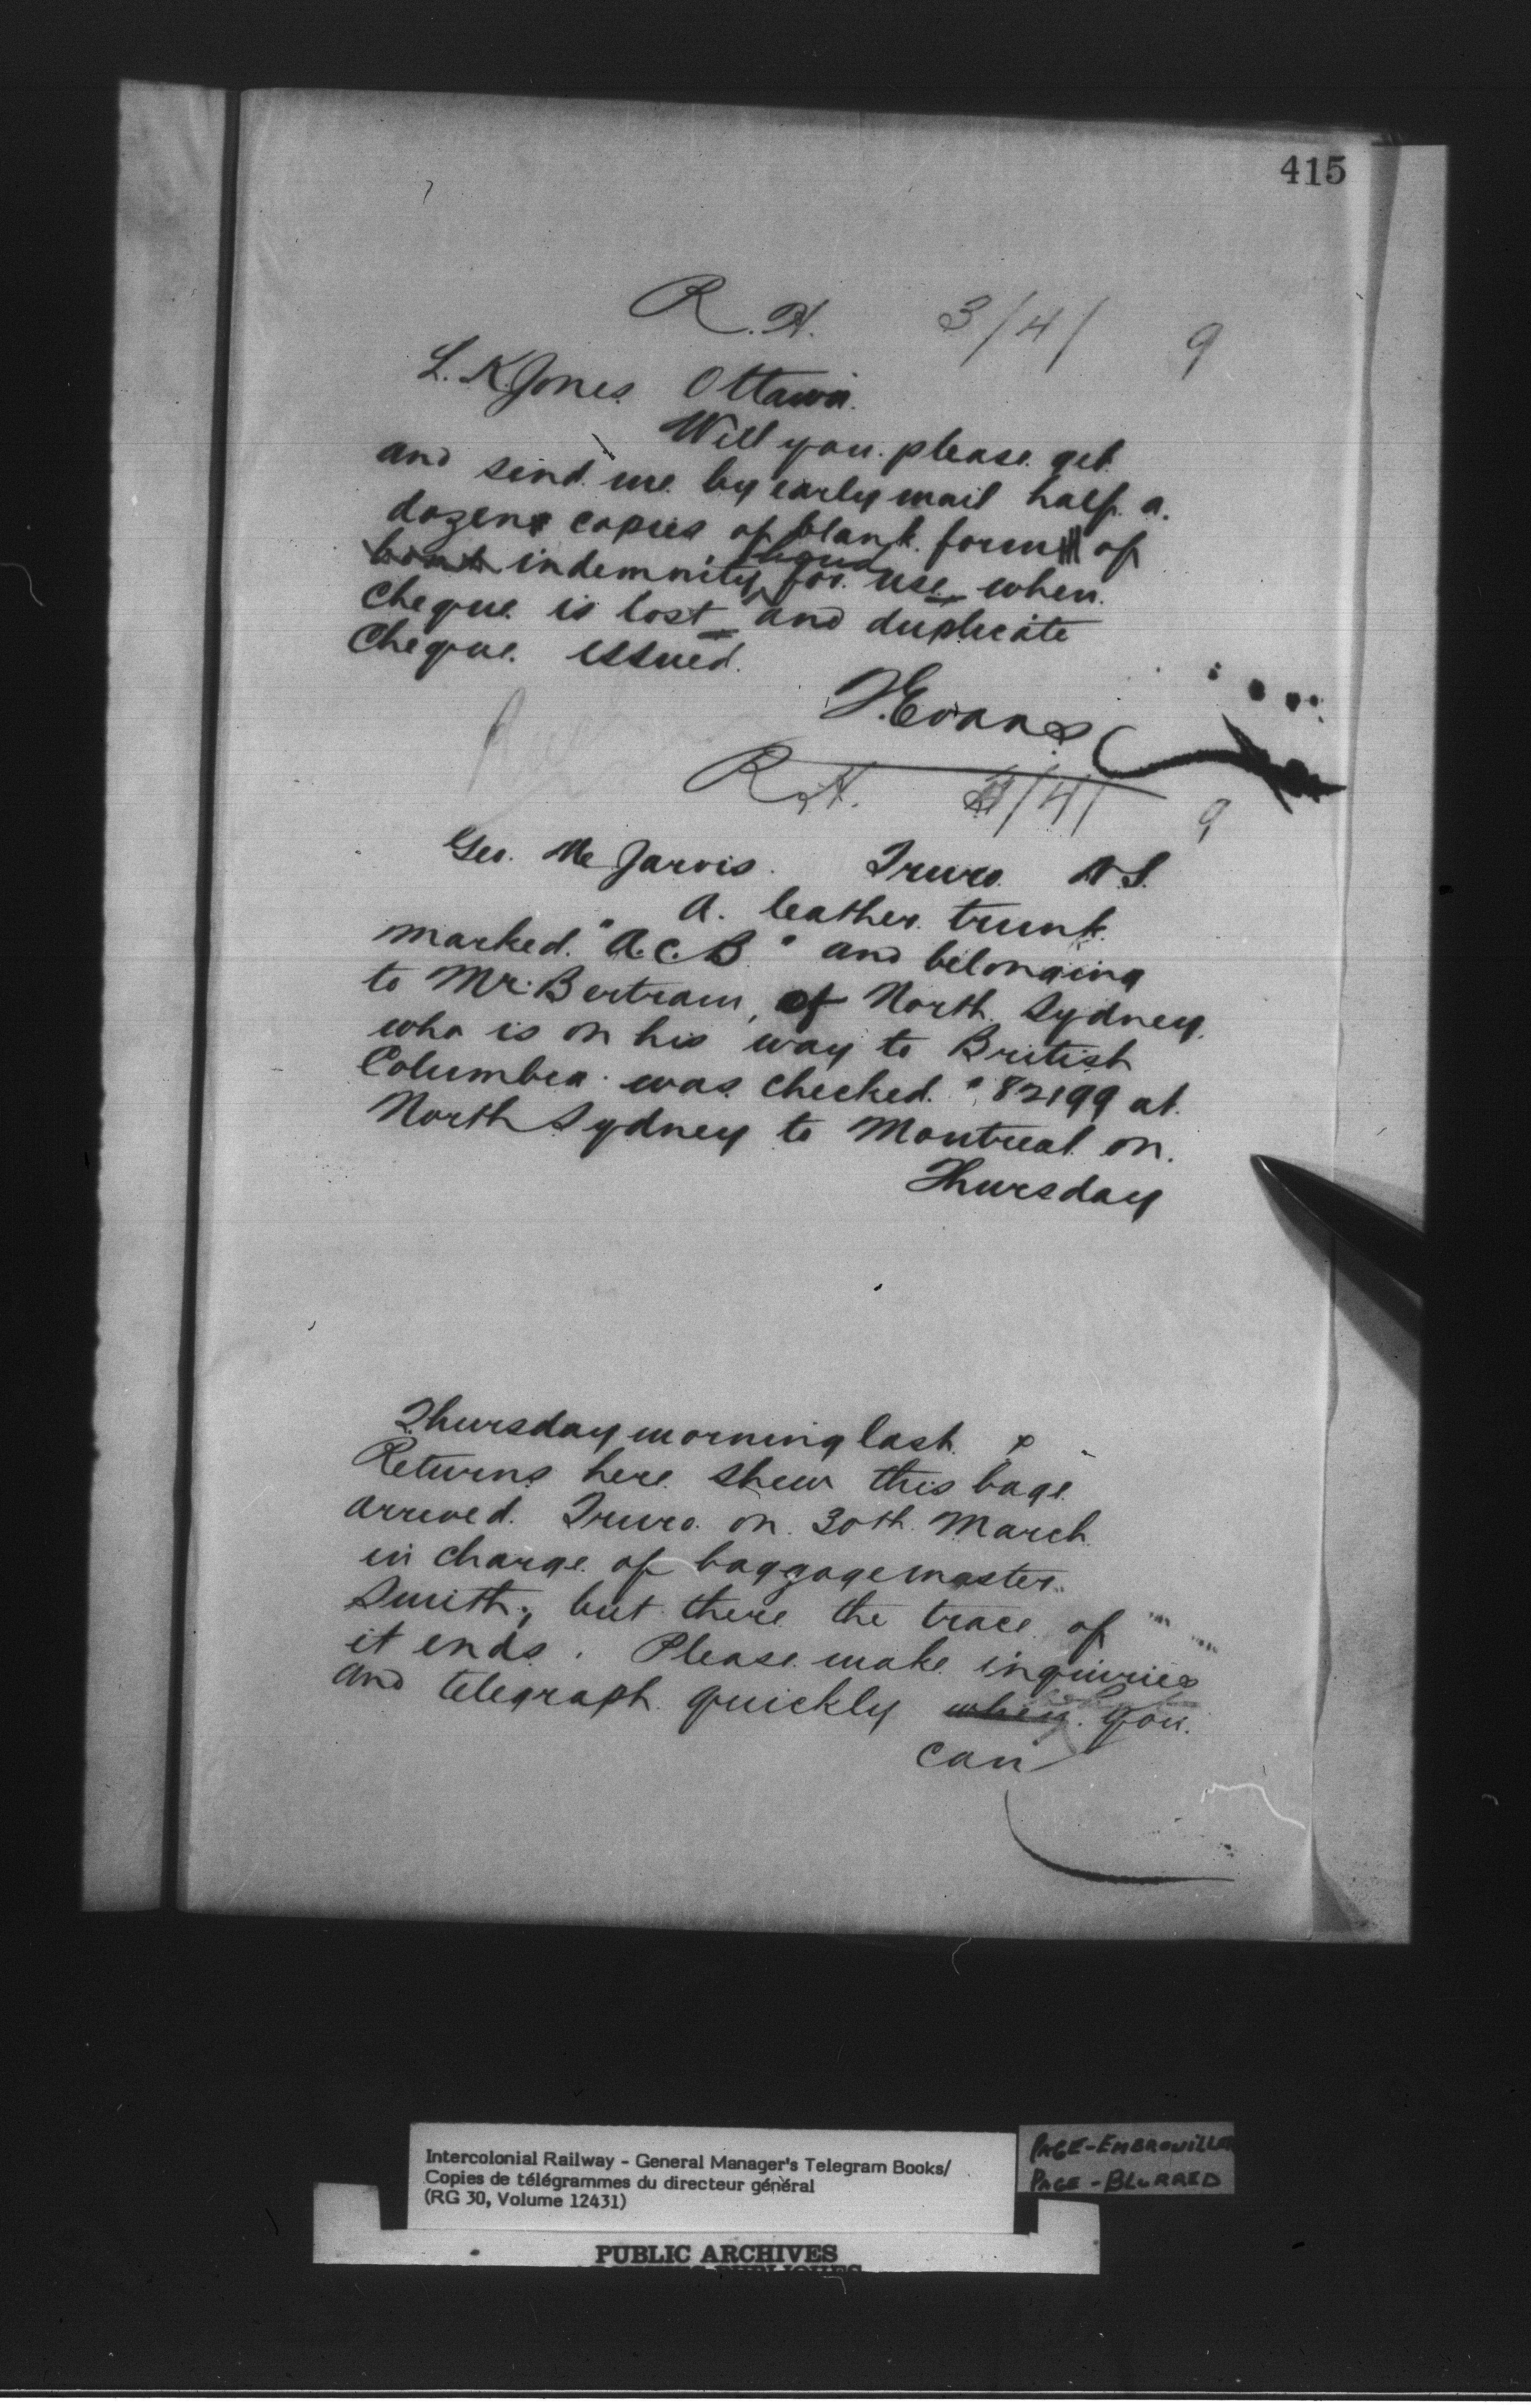 415
R. H. 3/4/ 9
L. K. Jones. Ottawa.
Will you please get
and send me by early mail half a
dozen copies of blank form of
bond
indemnity for use when
cheque is lost and duplicate
cheque issued.
T. Evans
R. H. /4/ 9
Geo. M Jarvis. Truro N.S.
A. leather trunk
marked "A.C.B." and belonging
to Mr. Bertram, of North Sydney,
who is on his way to British
Columbia was checked # 82199 at
North Sydney to Montreal on
Thursday
Thursday morning last.
Returns here shew this bage
arrived Truro on 30th March
in charge of baggagemaster
Smith, but there the trace of
it ends. Please make inquiries
and telegraph quickly when you
can
Intercolonial Railway - General Manager's Telegram Books/
Copies de télégrammes du directeur général
(RG 30, Volume 12431)
PAGE-EMBROUILLEE
PAGE-BLURRED
PUBLIC ARCHIVES